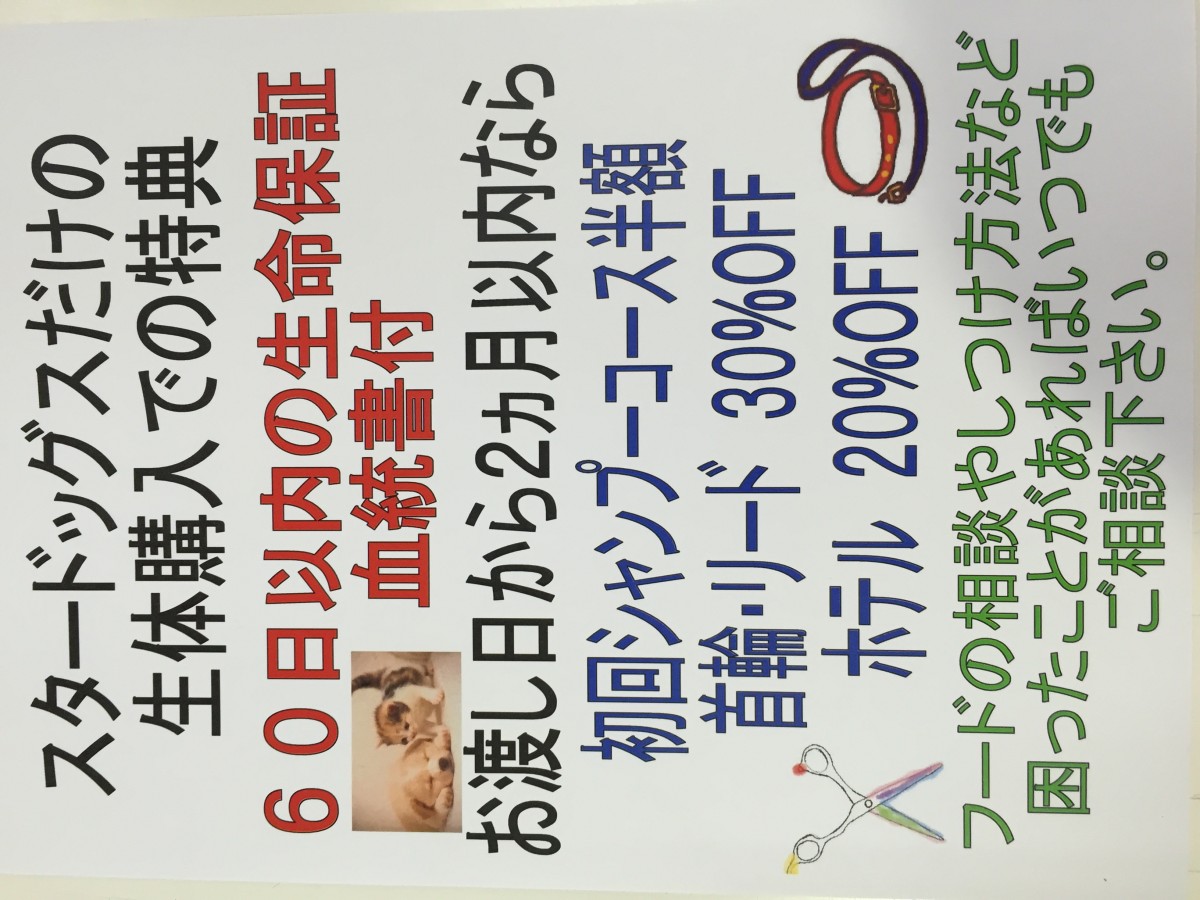 スタードッグスだけの
生体購入での特典
６０日以内の生命保証
血統書付
お渡し日から2ヵ月以内なら
初回シャンプーコース半額
首輪・リード　30%OFF
ホテル　20%OFF
フードの相談やしつけ方法など
困ったことがあればいつでも
ご相談下さい。